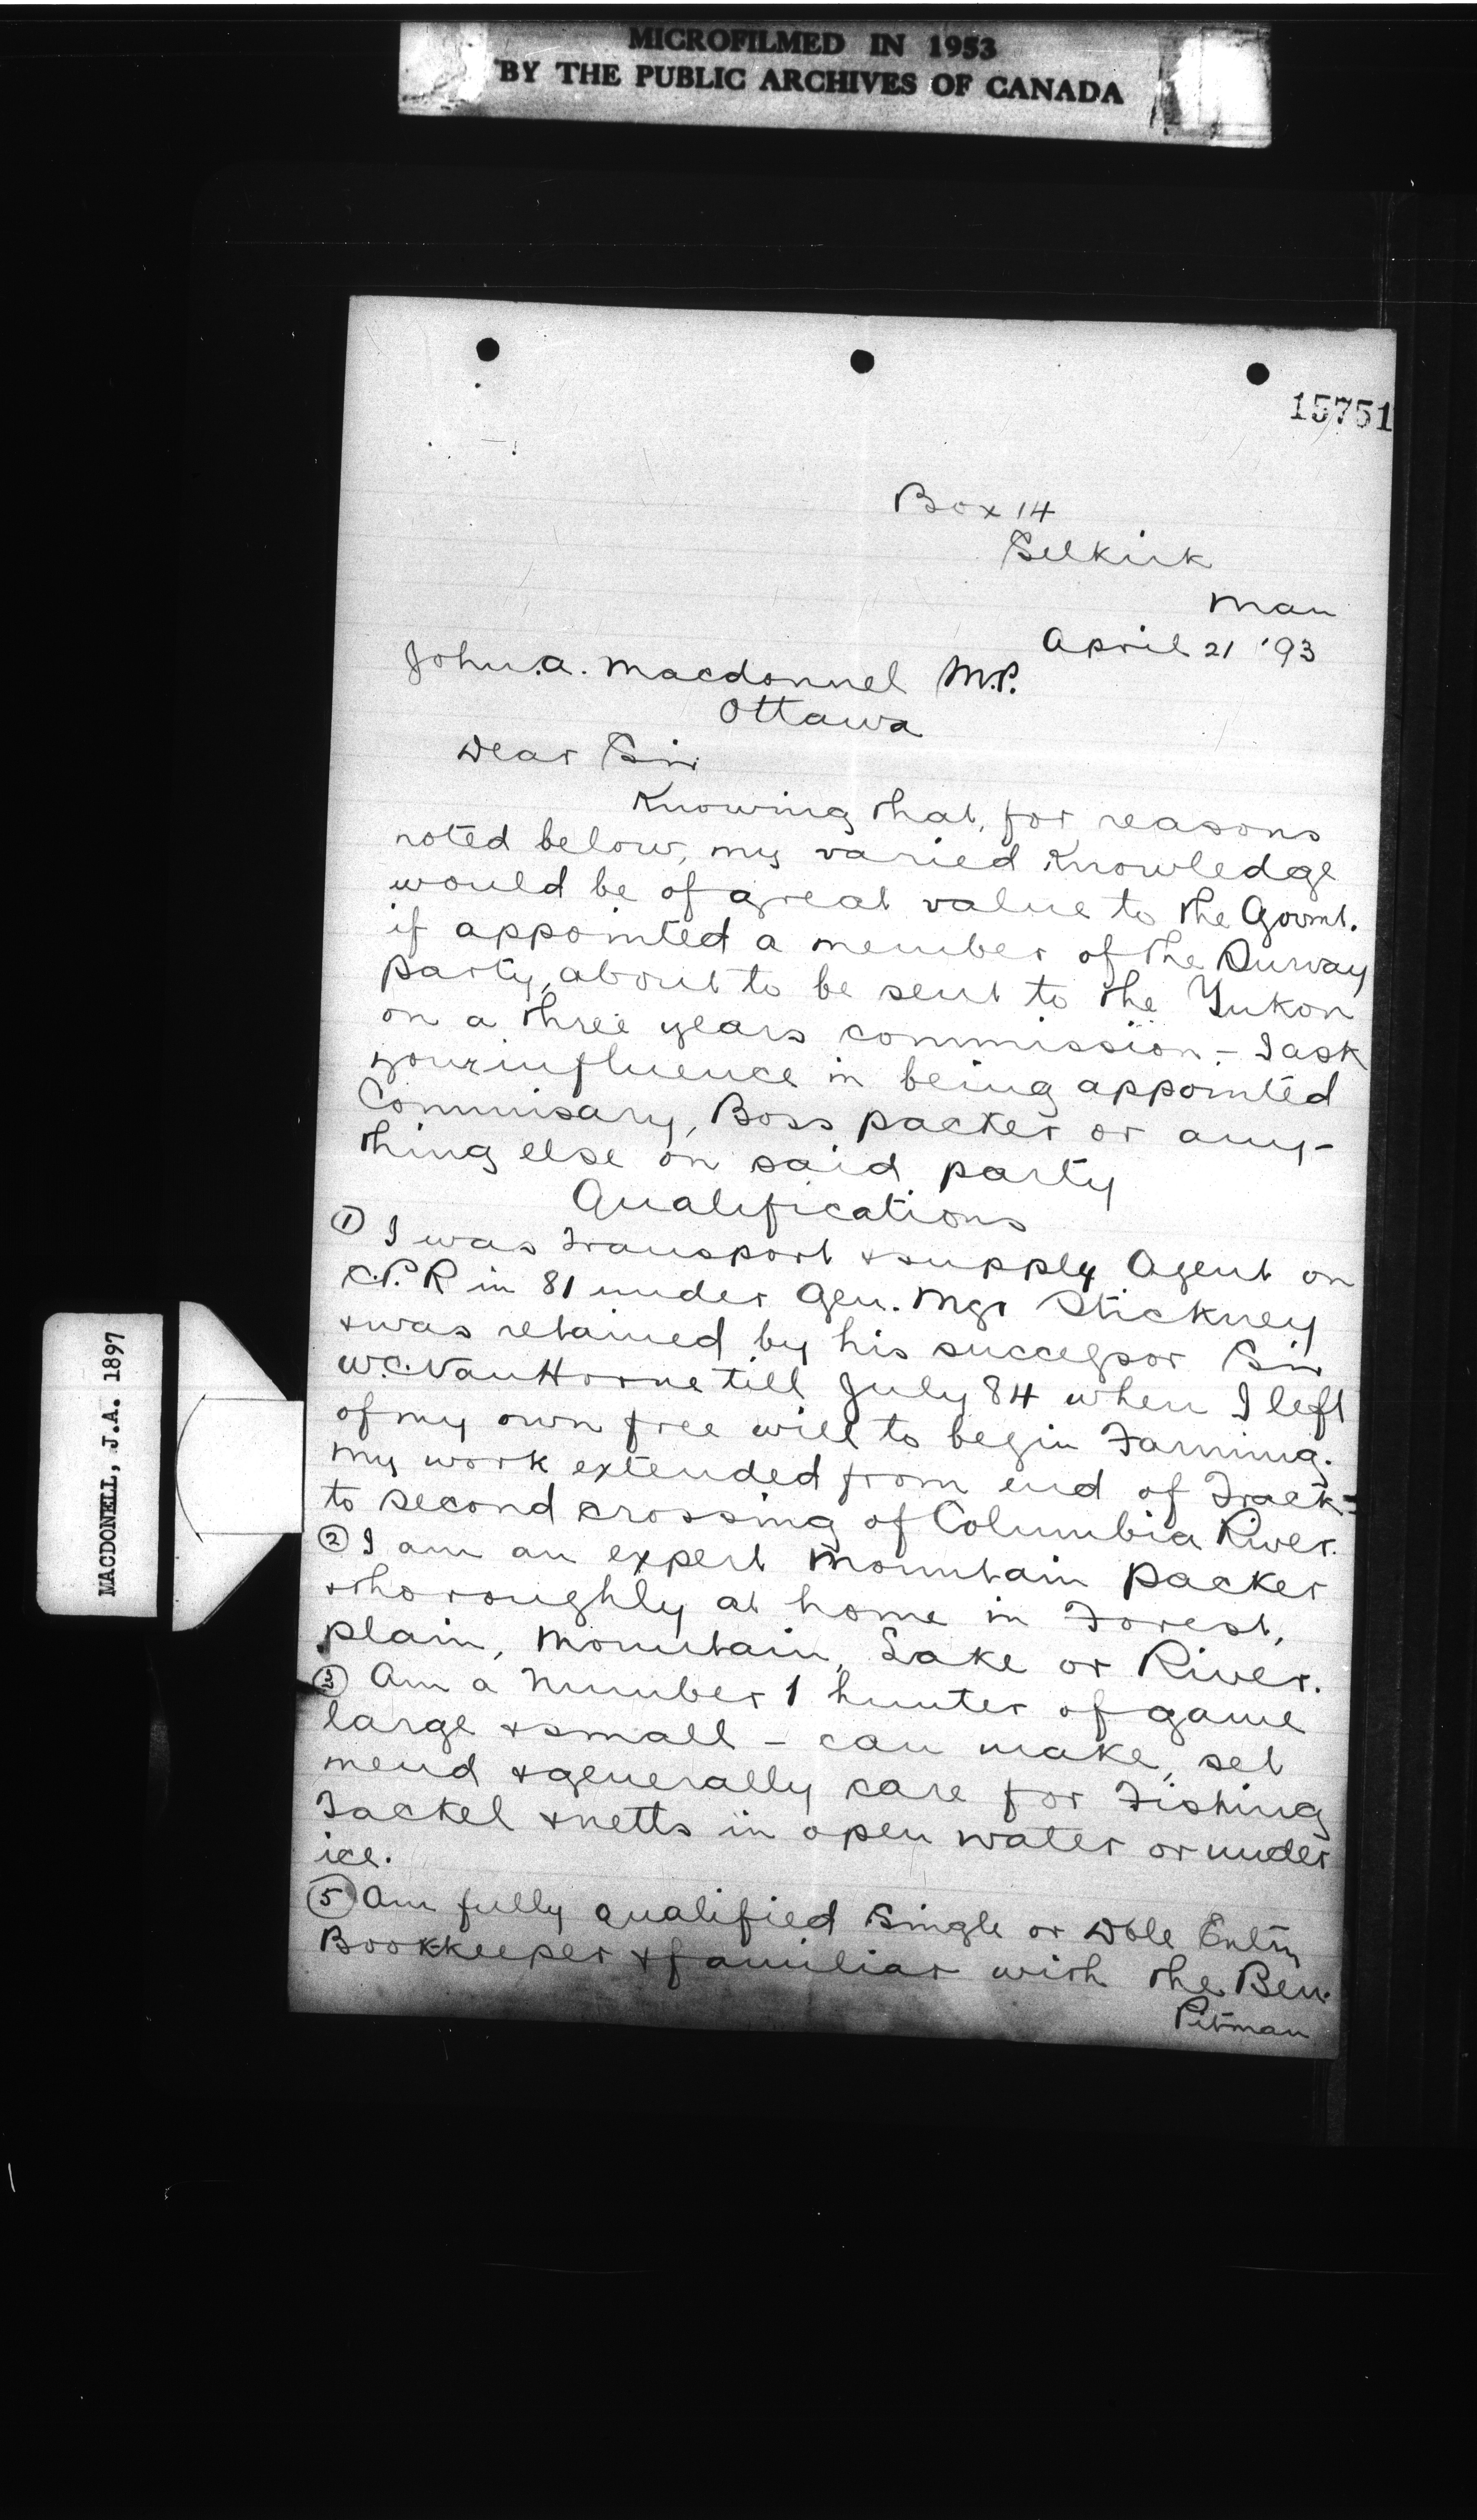 MICROFILMED IN 1953
BY THE PUBLIC ARCHIVES OF CANADA
15751
Box 14
Selkirk
Man
April 21 '93
John. A. Macdonnel M.P.
Ottawa
Dear Sir
Knowing that, for reasons
noted below, my varied Knowledge
would be of great value to the Govmt.
if appointed a member of the Survay
party, about to be sent to the Yukon
on a three years commission – I ask
your influence in being appointed
Commisary, Boss packer or any-
thing else on said party
Qualifications
① I was Transport & supply Agent on
C.P.R in 81 under Gen. Mgr Stickney
& was retained by his successor Sir
W.C. Van Horne till July 84 when I left
of my own free will to begin Farming.
My work extended from end of Track =
to second crossing of Columbia River.
② I am an expert Mountain packer
& thoroughly at home in Forest,
plain, Mountain, Lake or River.
③ Am a Number 1 hunter of game
large & small – can make, set
mend & generally care for Fishing
Tackel & netts in open water or under
ice.
⑤ Am fully qualified Single or Dble Entry
Bookkeeper & familiar with the Ben.
Pitman
MACDONELL, J.A. 1897